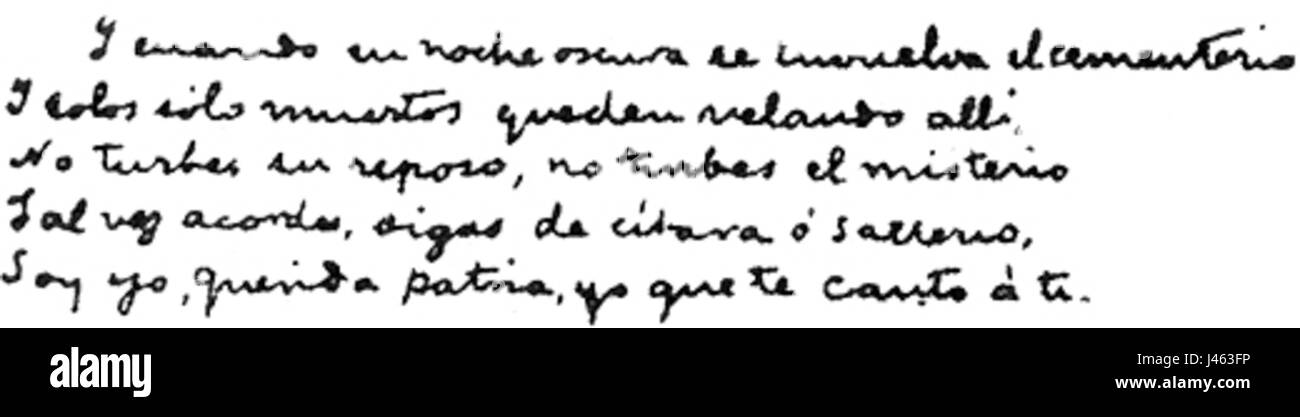 Y cuando en noche oscura se envuelva el cementerio
Y solos sólo muertos queden velando alli,
No turbes su reposo, no turbes el misterio
Tal vez acordes, oigas de cítara ó salterio,
Soy yo, querida patria, yo que te canto á ti.
alamy stock photo
J463FP
www.alamy.com